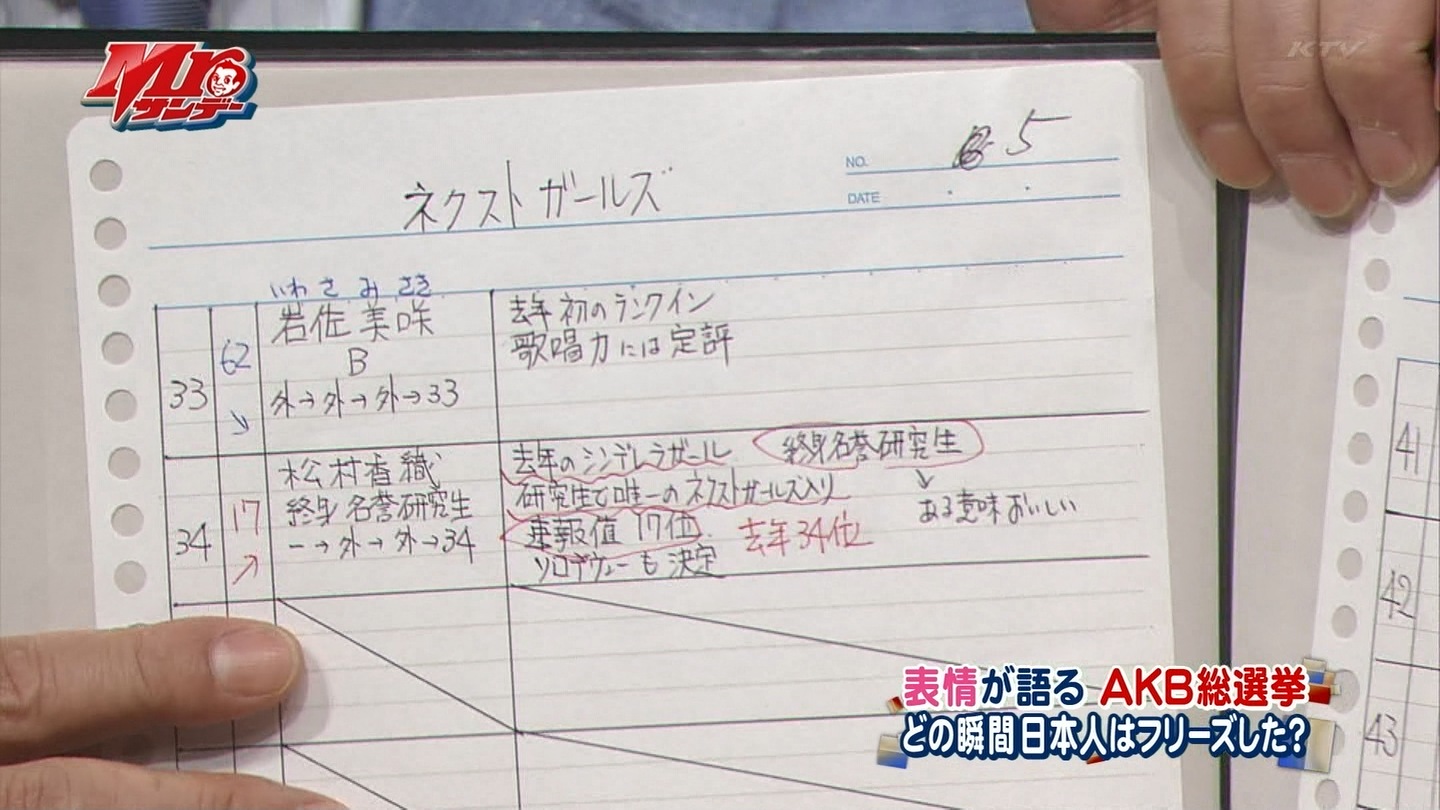 Mr
サンデー
KTV
NO. 5
DATE
ネクストガールズ
いわさ みさき
33
62
↘
岩佐美咲
B
外→外→外→33
去年初のランクイン
歌唱力には定評
34
17
↗
松村香織
終身名誉研究生
ー→外→外→34
去年のシンデレラガール
終身名誉研究生
↓
ある意味おいしい
研究生で唯一のネクストガールズ入り
速報値 17位
去年34位
ソロデヴューも決定
41
42
43
表情が語る AKB総選挙
どの瞬間日本人はフリーズした?